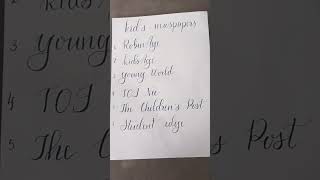 kid's newspapers
1 RobinAge
2 kidsAge
3 young World
4 TOI Nie
5 The Children's Post
Student edge
2 kidsAge
3 Young
4 TOI
5 The
Post